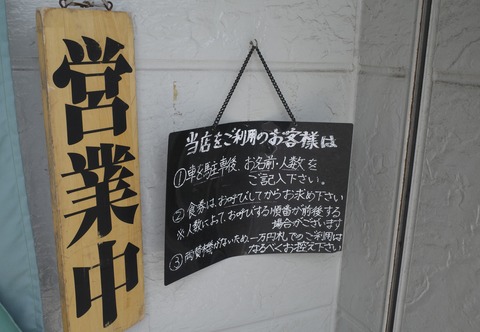 営業中
当店をご利用のお客様は
①車を駐車後、お名前・人数を
ご記入下さい。
②食券は、お呼びしてからお求め下さい
※人数によって、お呼びする順番が前後する
場合がございます
③両替機がないため一万円札でのご利用は
なるべくお控え下さい